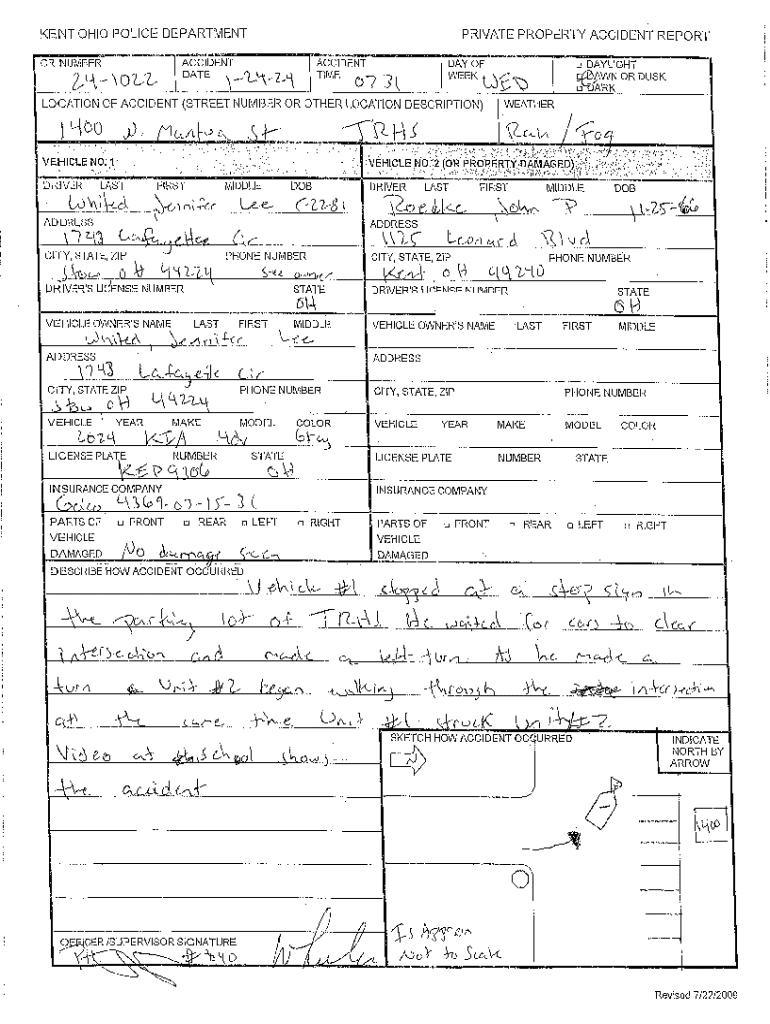 KENT OHIO POLICE DEPARTMENT PRIVATE PROPERTY ACCIDENT REPORT
CR NUMBER 24-1022 ACCIDENT DATE 1-24-24 ACCIDENT TIME 0731 DAY OF WEEK WED DAYLIGHT DAWN OR DUSK DARK
LOCATION OF ACCIDENT (STREET NUMBER OR OTHER LOCATION DESCRIPTION) WEATHER
1400 N. Mantua St TRHS Rain / Fog
VEHICLE NO. 1 VEHICLE NO. 2 (OR PROPERTY DAMAGED)
DRIVER LAST FIRST MIDDLE DOB DRIVER LAST FIRST MIDDLE DOB
Jennifer Lee John P
ADDRESS ADDRESS
1743 Lafayette Cir 1125 Leonard Blvd
CITY, STATE, ZIP PHONE NUMBER CITY, STATE, ZIP PHONE NUMBER
Stow OH 44224 See owner Kent OH 44240
DRIVER'S LICENSE NUMBER STATE DRIVER'S LICENSE NUMBER STATE
OH OH
VEHICLE OWNER'S NAME LAST FIRST MIDDLE VEHICLE OWNER'S NAME LAST FIRST MIDDLE
Jennifer Lee
ADDRESS ADDRESS
1743 Lafayette Cir
CITY, STATE ZIP PHONE NUMBER CITY, STATE, ZIP PHONE NUMBER
Stow OH 44224
VEHICLE YEAR MAKE MODEL COLOR VEHICLE YEAR MAKE MODEL COLOR
2024 KIA 4dr Gray
LICENSE PLATE NUMBER STATE LICENSE PLATE NUMBER STATE
OH
INSURANCE COMPANY INSURANCE COMPANY
Geico 4369-03-15-31
PARTS OF FRONT REAR LEFT RIGHT PARTS OF FRONT REAR LEFT RIGHT
VEHICLE VEHICLE
DAMAGED No damage seen DAMAGED
DESCRIBE HOW ACCIDENT OCCURRED
Vehicle #1 stopped at a stop sign in
the parking lot of TRHS. He waited for cars to clear
intersection and made a left turn. As he made a
turn Unit #2 began walking through the intersection
at the same time Unit #1 struck Unit #2
Video at school shows
the accident
SKETCH HOW ACCIDENT OCCURRED INDICATE
NORTH BY
ARROW
N
1400
OFFICER/SUPERVISOR SIGNATURE
#240
Not to Scale
Revised 7/22/2009